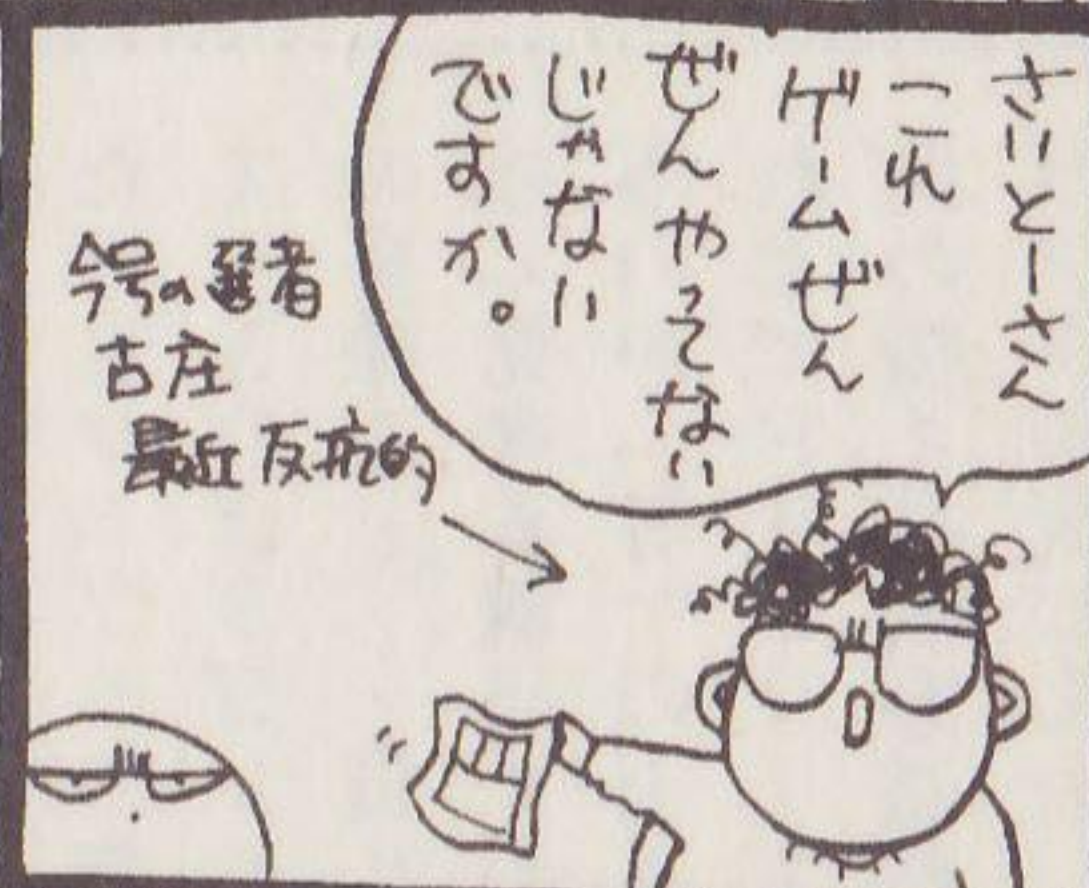 さいとーさん
これ
ゲームぜん
ぜんやってない
じゃない
ですか。
今号の選者
古庄
最近反抗的